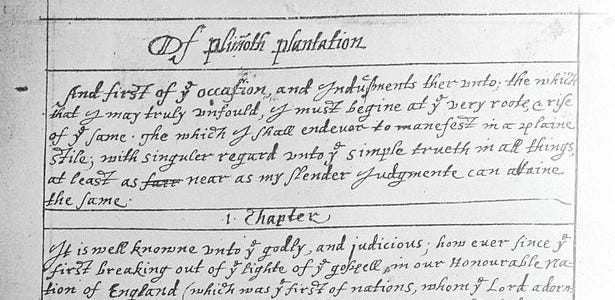 Of plimoth plantation
And first of yͤ occasion, and Indusments ther unto; the which
that I may truly unfould, I must begine at yͤ very roote, & rise
of yͤ same. The which I shall endevor to manefest in a plaine
stile; with singuler regard unto yͤ simple trueth in all things,
at least as farr near as my slender Judgmente can attaine
the same.
1. Chapter
It is well knowne unto yͤ godly, and judicious; how ever since yͤ
first breaking out of yͤ lighte of yͤ gospell, in our Honourable Na-
tion of England (which was yͤ first of nations, whom yͤ Lord adorn